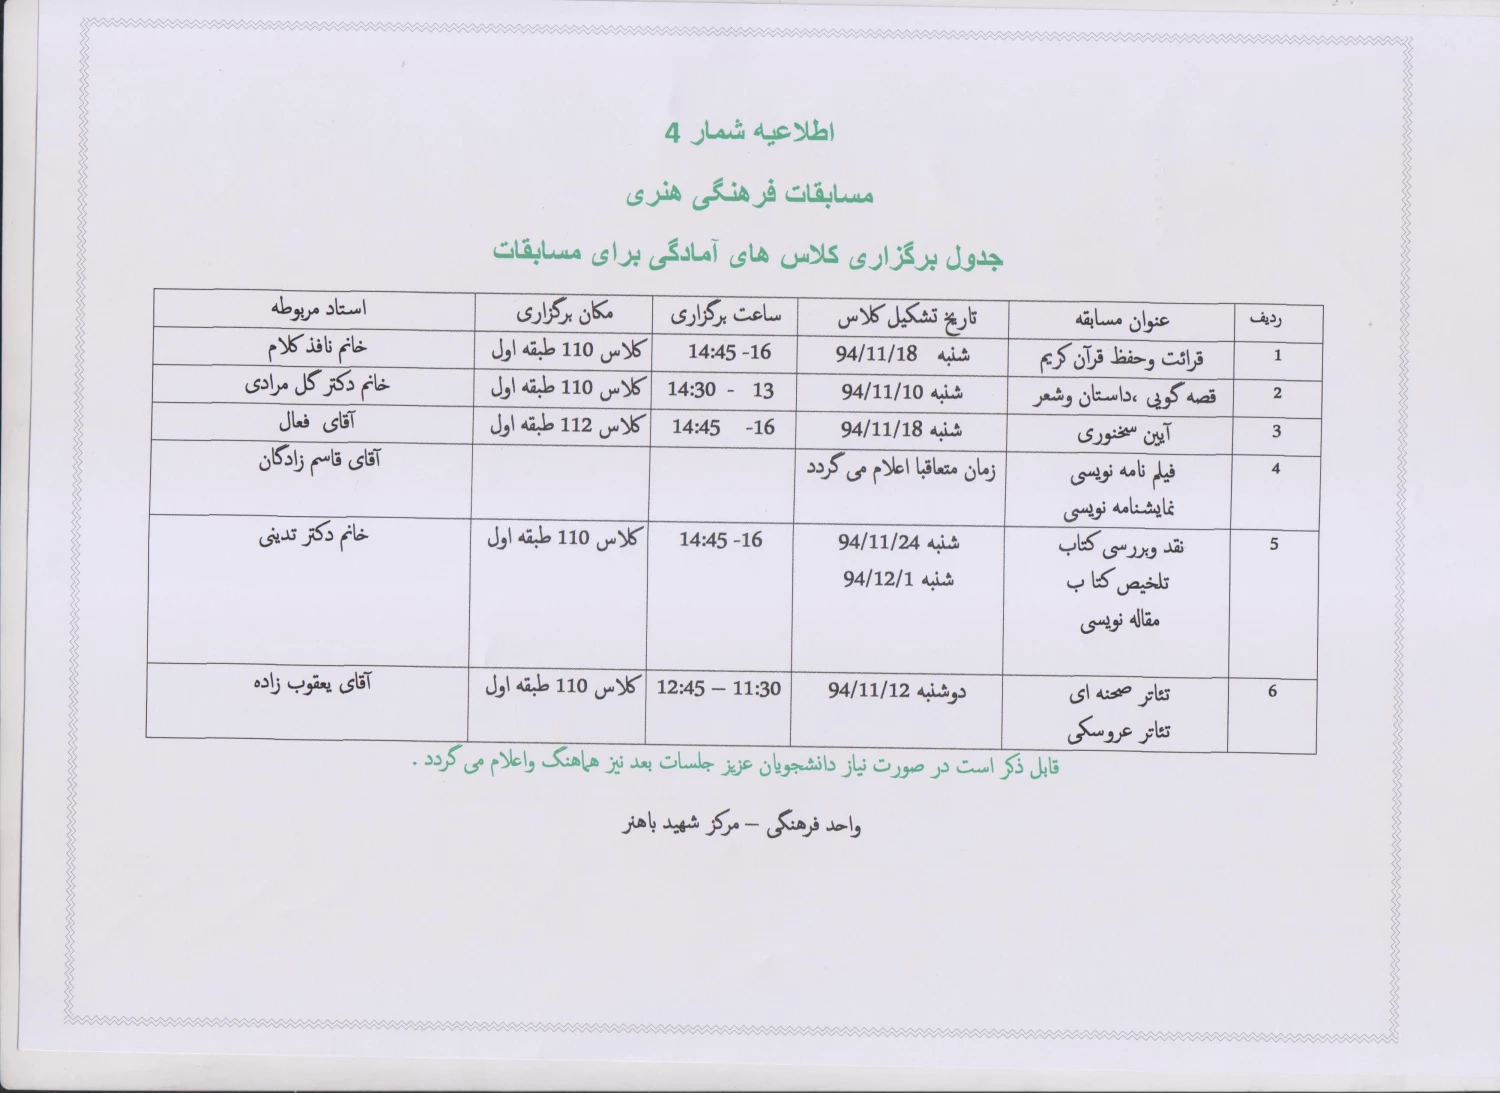 اطلاعیه شمار 4
مسابقات فرهنگی هنری
جدول برگزاری کلاس های آمادگی برای مسابقات
ردیف عنوان مسابقه تاریخ تشکیل کلاس ساعت برگزاری مکان برگزاری استاد مربوطه
1 قرائت وحفظ قرآن کریم شنبه 94/11/18 14:45 -16 کلاس 110 طبقه اول خانم نافذ کلام
2 قصه گویی ،داستان وشعر شنبه 94/11/10 14:30 - 13 کلاس 110 طبقه اول خانم دکتر گل مرادی
3 آیین سخنوری شنبه 94/11/18 14:45 -16 کلاس 112 طبقه اول آقای فعال
4 فیلم نامه نویسی زمان متعاقبا اعلام می گردد آقای قاسم زادگان
نمایشنامه نویسی
5 نقد وبررسی کتاب شنبه 94/11/24 14:45 -16 کلاس 110 طبقه اول خانم دکتر تدینی
تلخیص کتا ب شنبه 94/12/1
مقاله نویسی
6 تئاتر صحنه ای دوشنبه 94/11/12 12:45 – 11:30 کلاس 110 طبقه اول آقای یعقوب زاده
تئاتر عروسکی
قابل ذکر است در صورت نیاز دانشجویان عزیز جلسات بعد نیز هماهنگ واعلام می گردد .
واحد فرهنگی – مرکز شهید باهنر